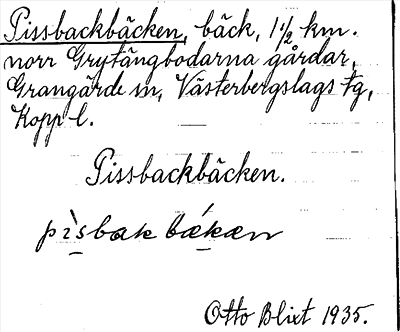 Pissbackbäcken, bäck, 1 1/2 km.
norr Grytängbodarna gårdar,
Grangärde sn, Västerbergslags tg,
Kopp l.
Pissbackbäcken.
pìsbak bǽkæn
Otto Blixt 1935.